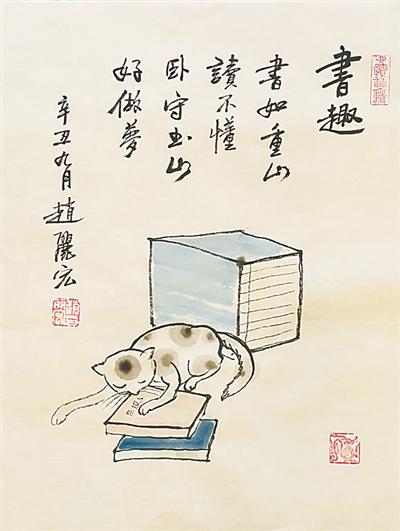 書趣
書如重山
讀不懂
卧守书山
好做夢
辛丑九月趙麗宏